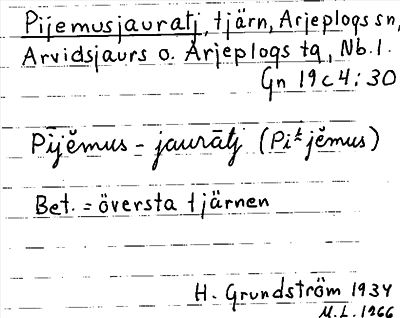 Pijemusjauratj, tjärn, Arjeplogs sn,
Arvidsjaurs o. Arjeplogs tg, Nb.l.
Gn 19c4:30
Pījĕmus - jaurātj (Piᵗjĕmus)
Bet. = översta tjärnen
H. Grundström 1934
M.L. 1966